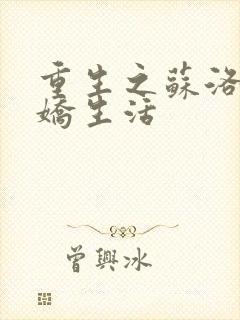 重生之蘇洛
嬌生活
曾興冰